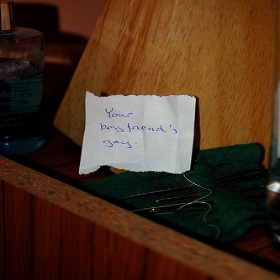 Your
boyfriend's
gay.